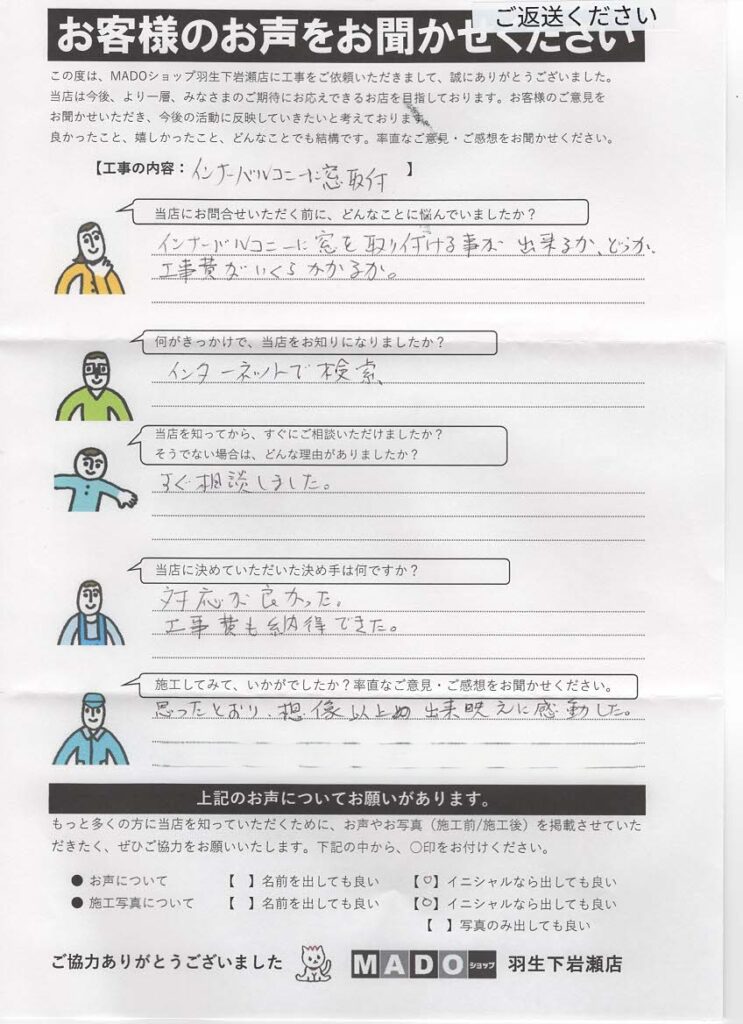 ご返送ください
お客様のお声をお聞かせください
この度は、MADOショップ羽生下岩瀬店に工事をご依頼いただきまして、誠にありがとうございました。
当店は今後、より一層、みなさまのご期待にお応えできるお店を目指しております。お客様のご意見を
お聞かせいただき、今後の活動に反映していきたいと考えております。
良かったこと、嬉しかったこと、どんなことでも結構です。率直なご意見・ご感想をお聞かせください。
【工事の内容：インナーバルコニーに窓取付 】
当店にお問合せいただく前に、どんなことに悩んでいましたか？
インナーバルコニーに窓を取り付ける事が出来るか、どうか、
工事費がいくらかかるか。
何がきっかけで、当店をお知りになりましたか？
インターネットで検索
当店を知ってから、すぐにご相談いただけましたか？
そうでない場合は、どんな理由がありましたか？
すぐ相談しました。
当店に決めていただいた決め手は何ですか？
対応が良かった。
工事費も納得できた。
施工してみて、いかがでしたか？率直なご意見・ご感想をお聞かせください。
思ったとおり、想像以上の出来映えに感動した。
上記のお声についてお願いがあります。
もっと多くの方に当店を知っていただくために、お声やお写真（施工前/施工後）を掲載させていた
だきたく、ぜひご協力をお願いいたします。下記の中から、○印をお付けください。
● お声について 【 】名前を出しても良い 【○】イニシャルなら出しても良い
● 施工写真について 【 】名前を出しても良い 【○】イニシャルなら出しても良い
【 】写真のみ出しても良い
ご協力ありがとうございました MADOショップ 羽生下岩瀬店